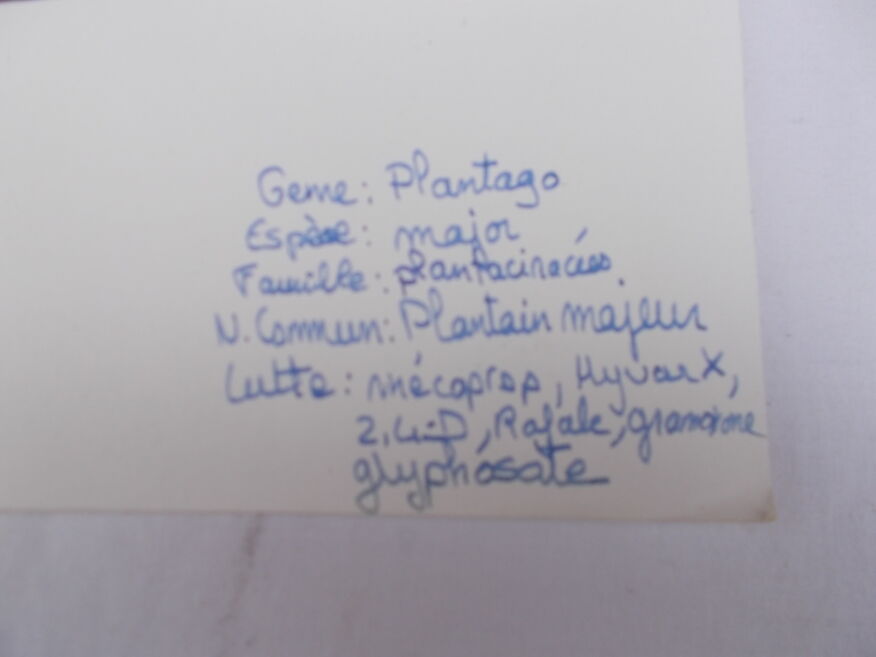 Genre: Plantago
Espèce: major
Famille: plantacinacées
N. Commun: Plantain majeur
Lutte: mécoprop, Hyvar X,
2,4-D, Rafale, gramoxone
glyphosate